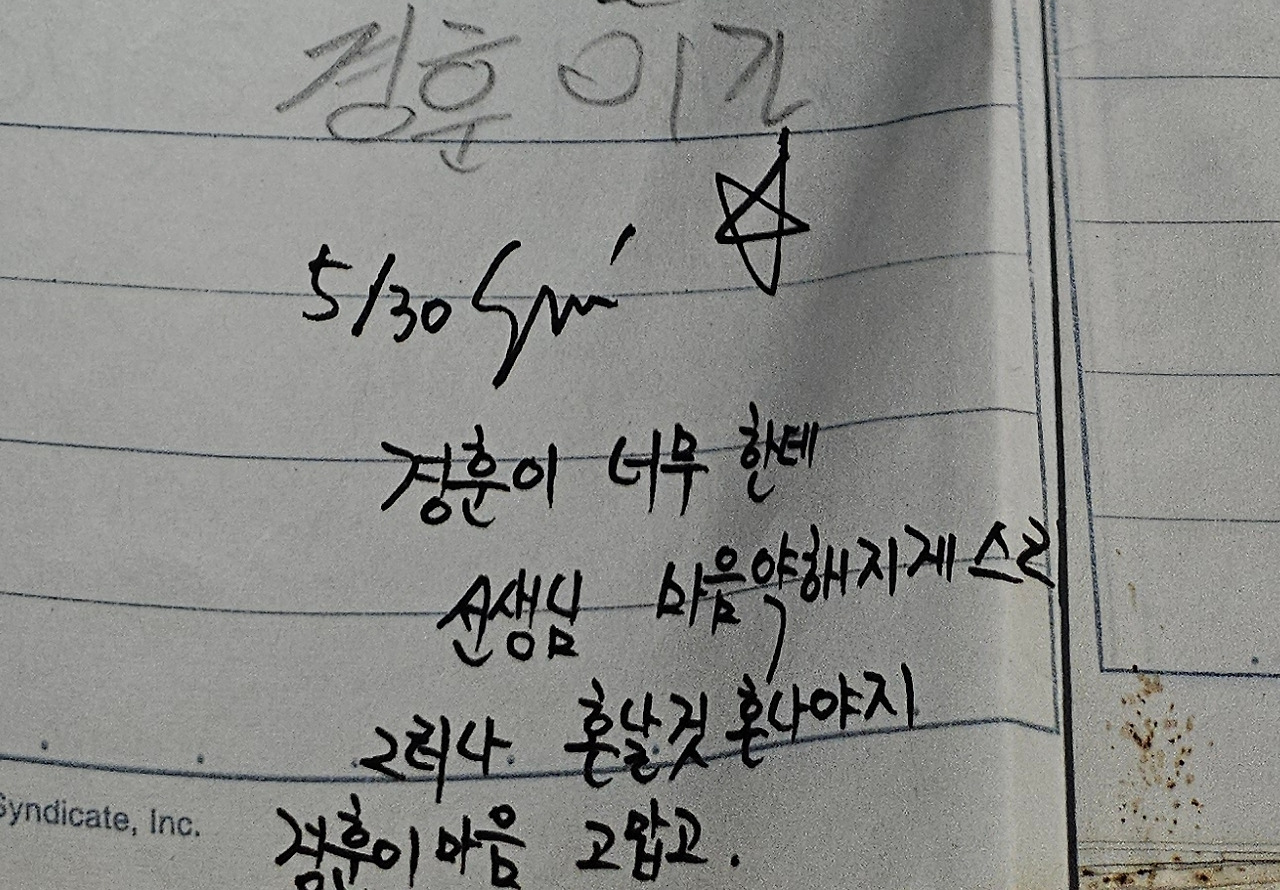 경훈 이가
5/30
경훈이 너무 한테
선생님 마음약해지게 스리
그러나. 혼날것 혼나야지
경훈이 마음 고맙고.
Syndicate, Inc.